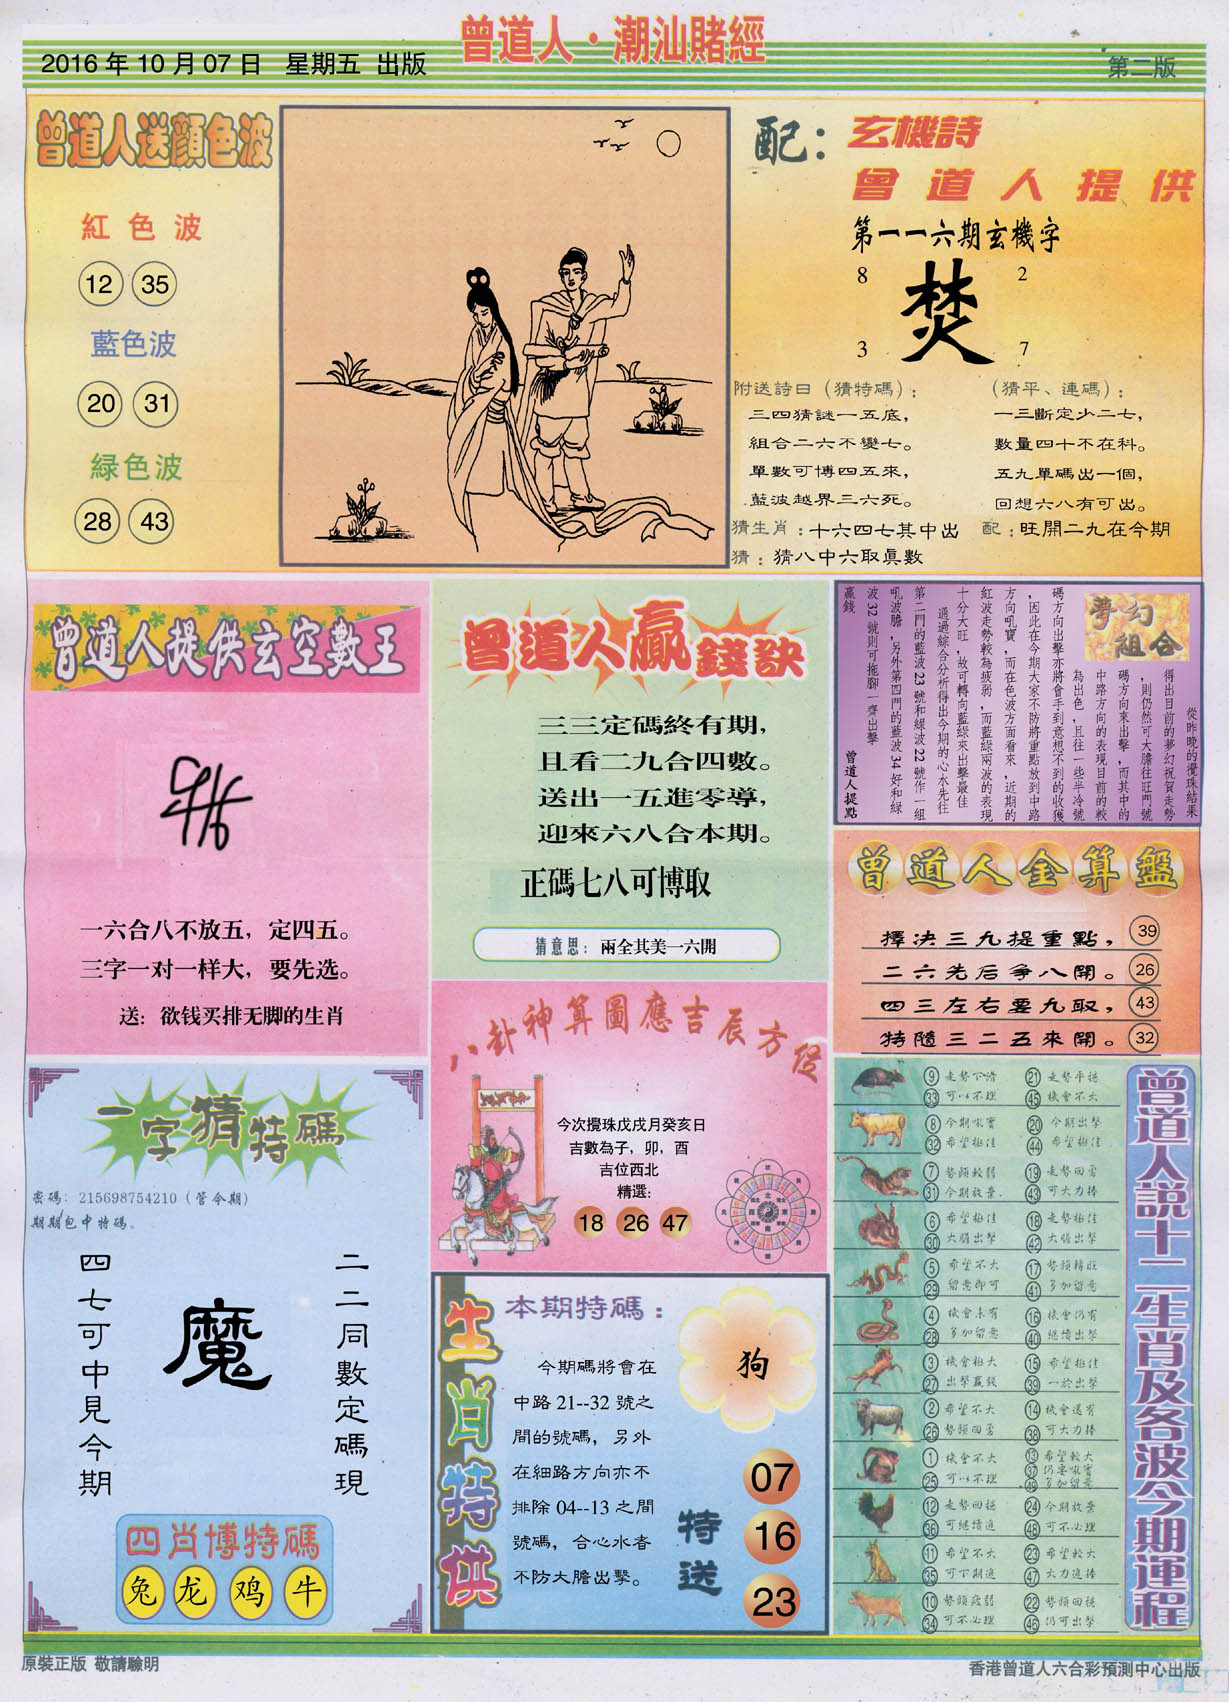 曾道人·潮汕賭經
2016年10月07日 星期五 出版
第二版
曾道人送顏色波
紅色波
12 35
藍色波
20 31
緑色波
28 43
配：玄機詩
曾道人提供
第一一六期玄機字
8 2
焚
3 7
附送詩曰（猜特碼）：
三四猜謎一五底，
組合二六不變七。
單數可博四五來，
藍波越界三六死。
猜生肖：十六四七其中出
猜：猜八中六取眞數
（猜平、連碼）：
一三斷定少二七，
數量四十不在科。
五九單碼出一個，
回想六八有可出。
配：旺開二九在今期
曾道人提供玄空數王
一六合八不放五，定四五。
三字一对一样大，要先选。
送：欲钱买排无脚的生肖
曾道人贏錢訣
三三定碼終有期，
且看二九合四數。
送出一五進零導，
迎來六八合本期。
正碼七八可博取
猜意思：兩全其美一六開
夢幻
組合
從昨晚的攪珠結果
得出目前的夢幻祝賀走勢
，則仍然可大膽往旺門號
碼方向來出擊，而其中的
中路方向的表現目前的較
為出色，且往一些半冷號
碼方向出擊亦將會手到意想不到的收獲
，因此在今期大家不防將重點放到中路
方向吼寶，而在色波方面看來，近期的
紅波走勢較為疲弱，而藍綠兩波的表現
十分大旺，故可轉向藍綠來出擊最佳
通過綜合分析得出今期的心水先往
第二門的藍波23號和綠波22號作一組
吼波膽，另外第四門的藍波34好和綠
波32號則可拖腳一齊出擊
贏錢
曾道人提點
曾道人金算盤
擇決三九提重點，39
二六先后爭八開。26
四三左右要九取，43
特隨三二五來開。32
八卦神算圖應吉辰方位
今次攪珠戊戌月癸亥日
吉數為子，卯，酉
吉位西北
精選：
18 26 47
一字猜特碼
密碼：215698754210（管今期）
期期包中特碼。
二二同數定碼現
魔
四七可中見今期
四肖博特碼
兔 龙 鸡 牛
生肖特供
本期特碼：
狗
今期碼將會在
中路21--32號之
間的號碼，另外
在細路方向亦不
排除04--13之間
號碼，合心水者
不防大膽出擊。
特送
07
16
23
曾道人說十二生肖及各波今期運程
9 走勢下滑 21 走勢平穩
33 可以不理 45 機會不大
8 今期吼寶 20 今期出擊
32 希望極佳 44 希望極佳
7 勢頭較弱 19 走勢回勇
31 今期放棄 43 可大力捧
6 希望極佳 18 走勢極佳
30 大膽出擊 42 大膽出擊
5 希望不大 17 勢頭轉旺
29 留意即可 41 多加留意
4 機會未有 16 機會仍有
28 多加留意 40 繼續出擊
3 機會極大 15 希望極佳
27 出擊贏錢 39 一於出擊
2 希望不大 14 機會還有
26 勢頭回勇 38 可大力捧
1 機會不大 13 希望較大
25 可以不理 37 仍要吼寶
49 多加留意
12 走勢回穩 24 今期放棄
36 可繼續追 48 可不必理
11 希望不大 23 希望較大
35 可下期追 47 大力追捧
10 勢頭疲弱 22 勢頭回穩
34 可不必理 46 仍可出擊
原裝正版 敬請驗明
香港曾道人六合彩預測中心出版